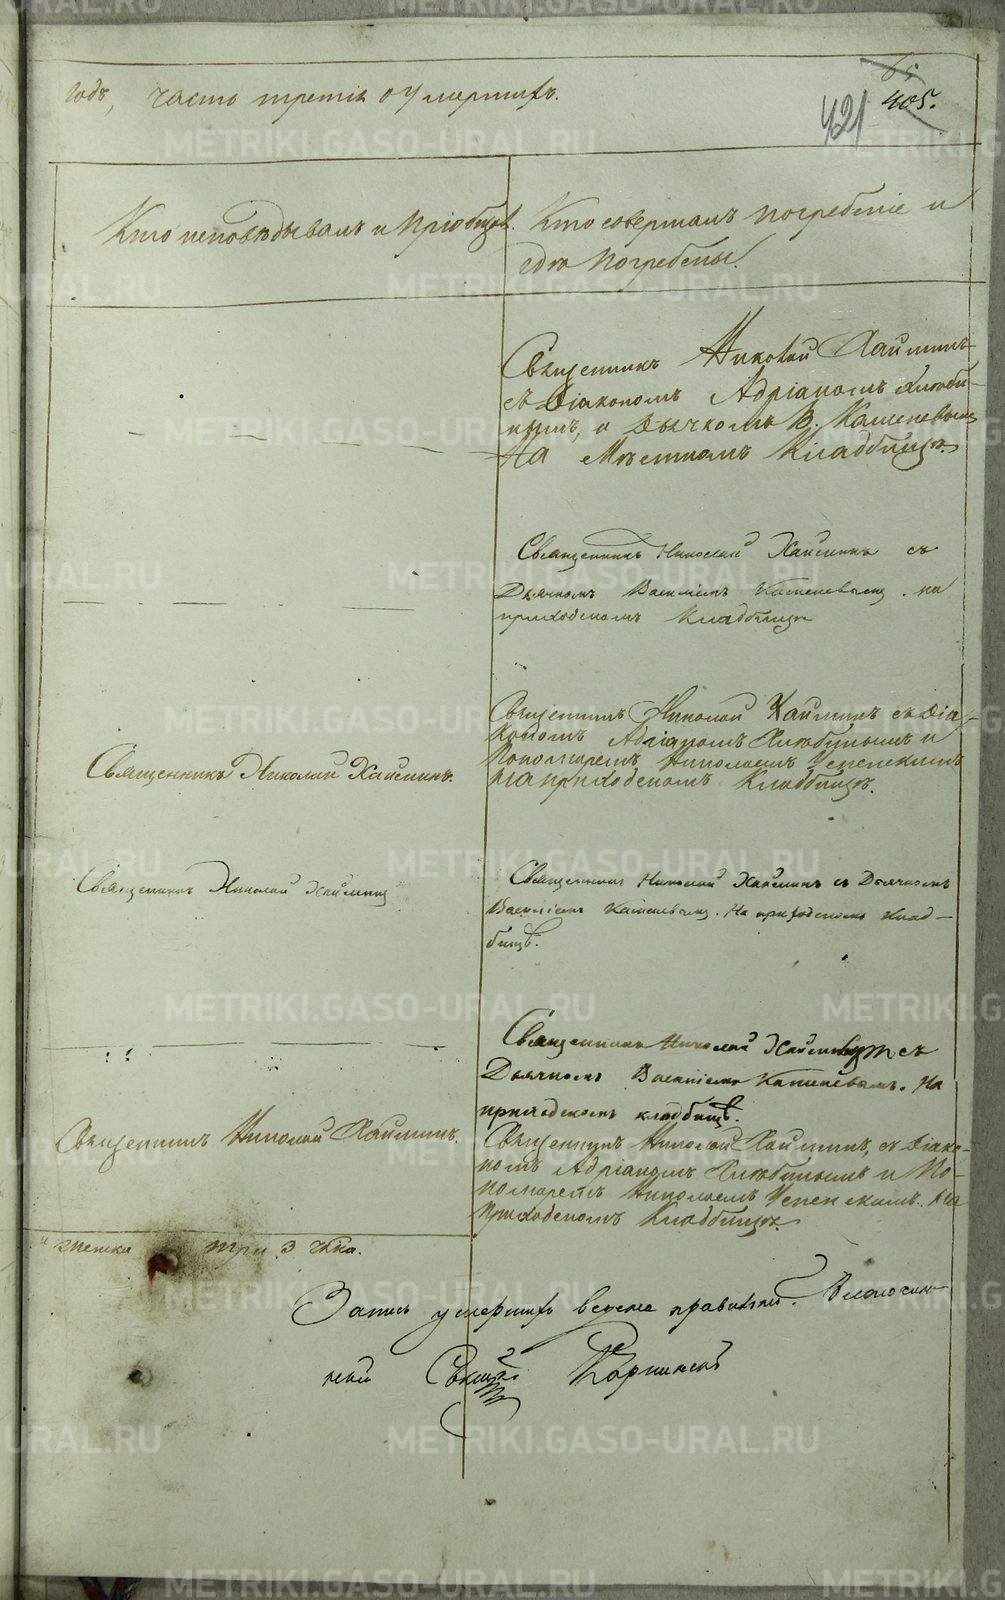 годъ, часть третія о умершихъ.
65
405.
421
Кто исповѣдывалъ и пріобщалъ.
Кто совершалъ погребеніе и
гдѣ погребены.
Священникъ Николай Хайминъ
съ Діакономъ Адріаномъ Хлюби-
нымъ, и Дьячкомъ В. Каменевымъ
На Мѣстномъ Кладбищѣ.
Священникъ Николай Хайминъ съ
Дьячкомъ Василіемъ Каменевымъ. на
приходскомъ Кладбищѣ
Священникъ Николай Хайминъ.
Священникъ Николай Хайминъ съ Діа-
кономъ Адріаномъ Хлюбинымъ и
Пономаремъ Николаемъ Успенскимъ
на приходскомъ Кладбищѣ.
Священникъ Николай Хайминъ
Священникъ Николай Хайминъ съ Дьячкомъ
Василіемъ Каменевымъ. На приходскомъ клад-
бищѣ.
Священникъ Николай Хайминъ съ
Дьячкомъ Василіемъ Каменевымъ. На
приходскомъ кладбищѣ.
Священникъ Николай Хайминъ.
Священникъ Николай Хайминъ, съ Діако-
номъ Адріаномъ Хлюбинымъ и По-
номаремъ Николаемъ Успенскимъ. На
Приходскомъ Кладбищѣ
и женска три 3 чка.
Запись умершихъ ведена правильно. Благочин-
ный Священ
METRIKI.GASO-URAL.RU